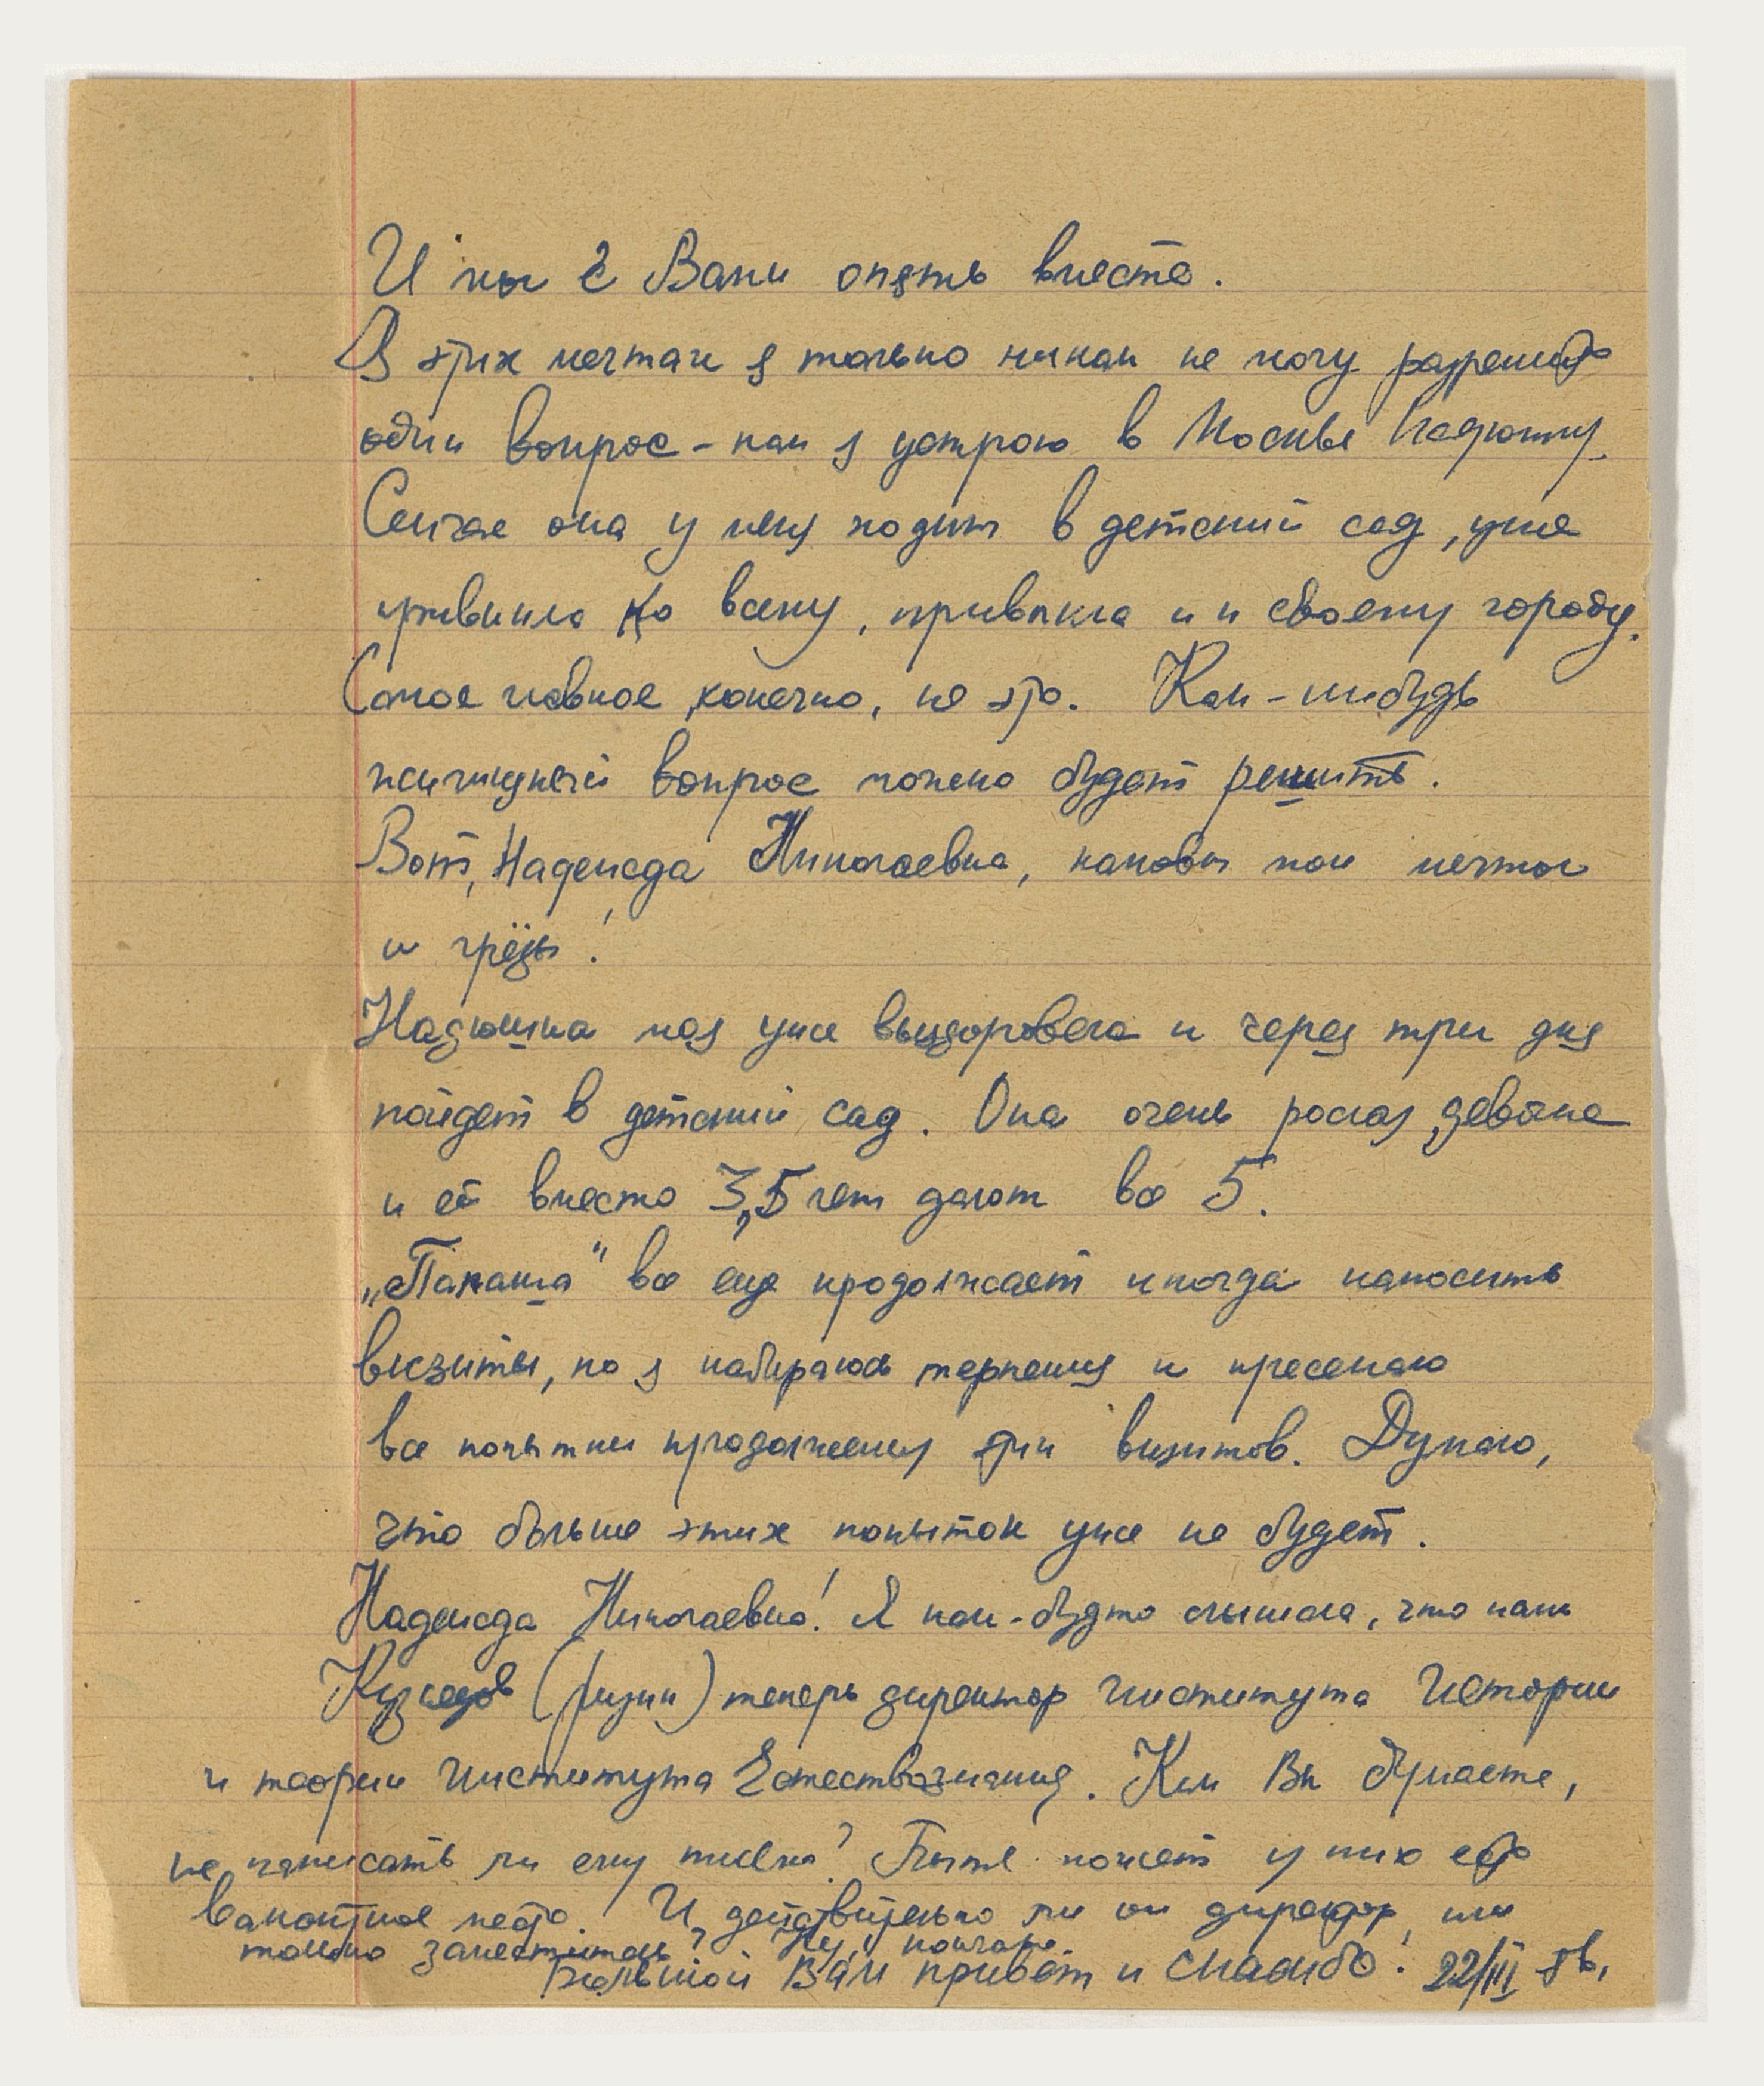 И мы с Вами опять вместе.
В этих мечтах я только никак не могу разрешить
один вопрос – как я устрою в Москве Надюшку.
Сейчас она у меня ходит в детский сад, уже
привыкла ко всему, привыкла и к своему городу.
Самое главное, конечно, не это. Как-нибудь
жилищный вопрос можно будет решить.
Вот, Надежда Николаевна, каковы мои мечты
и грёзы!
Надюшка моя уже выздоровела и через три дня
пойдет в детский сад. Она очень рослая девочка
и ей вместо 3,5 лет дают все 5.
„Папаша“ все еще продолжает иногда наносить
визиты, но я набираюсь терпения и пресекаю
все попытки продолжения этих визитов. Думаю,
что больше этих попыток уже не будет.
Надежда Николаевна! Я как-будто слышала, что наш
(физик) теперь директор Института Истории
и теории Института Естествознания. Как Вы думаете,
не написать ли ему письмо? Быть может у них есть
вакантное место. И действительно ли он директор, или
только заместитель? Ну, кончаю.
Большой Вам привет и спасибо! 22/III